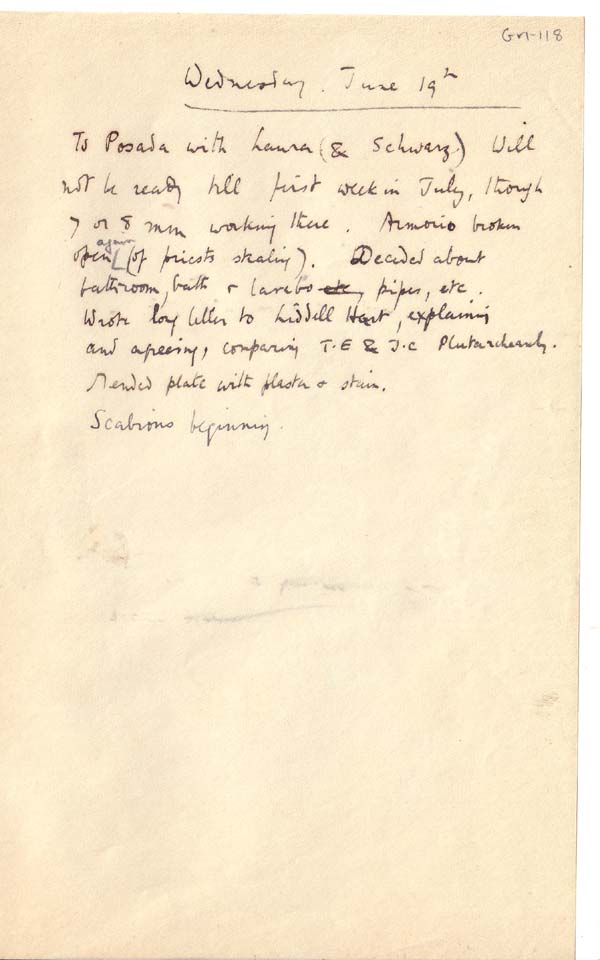 GM-118
Wednesday. June 19th
To Posada with Laura (& Schwarz) Will
not be ready till first week in July, though
7 or 8 men working there. Armorio broken
again
open (of priests stealing). Decided about
bathroom, bath & lavabo etc, pipes, etc.
Wrote long letter to Liddell Hart, explaining
and agreeing, comparing T.E & J.C Plutarcheanly.
Mended plate with plaster & stain.
Scabious beginning.